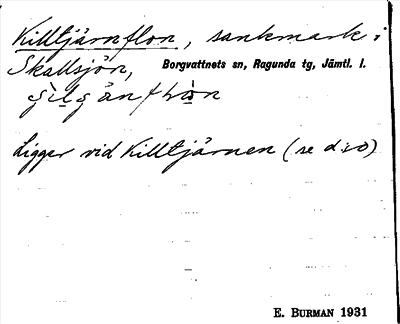 Killtjärnflon, sankmark i
Skallsjön, Borgvattnets sn, Ragunda tg, Jämtl. l.
Ligger vid Killtjärnen (se d:o)
E. BURMAN 1931